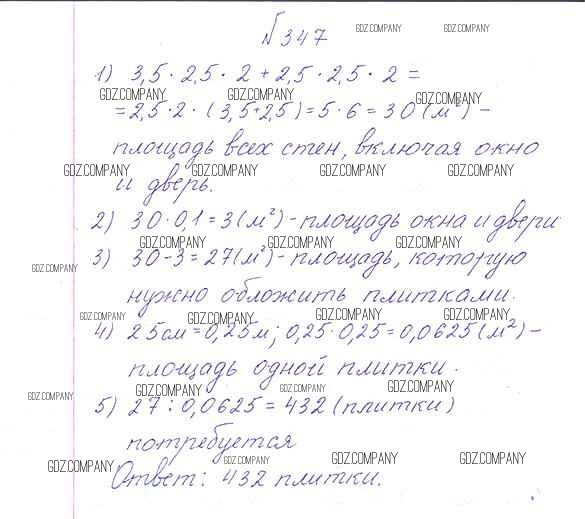 №347
GDZ.COMPANY GDZ.COMPANY
1) 3,5 · 2,5 · 2 + 2,5 · 2,5 · 2 =
GDZ.COMPANY GDZ.COMPANY GDZ.COMPANY
= 2,5 · 2 · (3,5+2,5) = 5 · 6 = 30 (м²) –
площадь всех стен, включая окно
GDZ.COMPANY GDZ.COMPANY GDZ.COMPANY GDZ.COMPANY
и дверь.
2) 30 · 0,1 = 3 (м²) – площадь окна и двери
GDZ.COMPANY GDZ.COMPANY GDZ.COMPANY
3) 30 – 3 = 27 (м²) – площадь, которую
GDZ.COMPANY
нужно обложить плитками.
GDZ.COMPANY GDZ.COMPANY GDZ.COMPANY GDZ.COMPANY
4) 25 см = 0,25 м; 0,25 · 0,25 = 0,0625 (м²) –
площадь одной плитки.
GDZ.COMPANY GDZ.COMPANY GDZ.COMPANY GDZ.COMPANY
5) 27 : 0,0625 = 432 (плитки)
потребуется
GDZ.COMPANY GDZ.COMPANY GDZ.COMPANY GDZ.COMPANY
Ответ: 432 плитки.